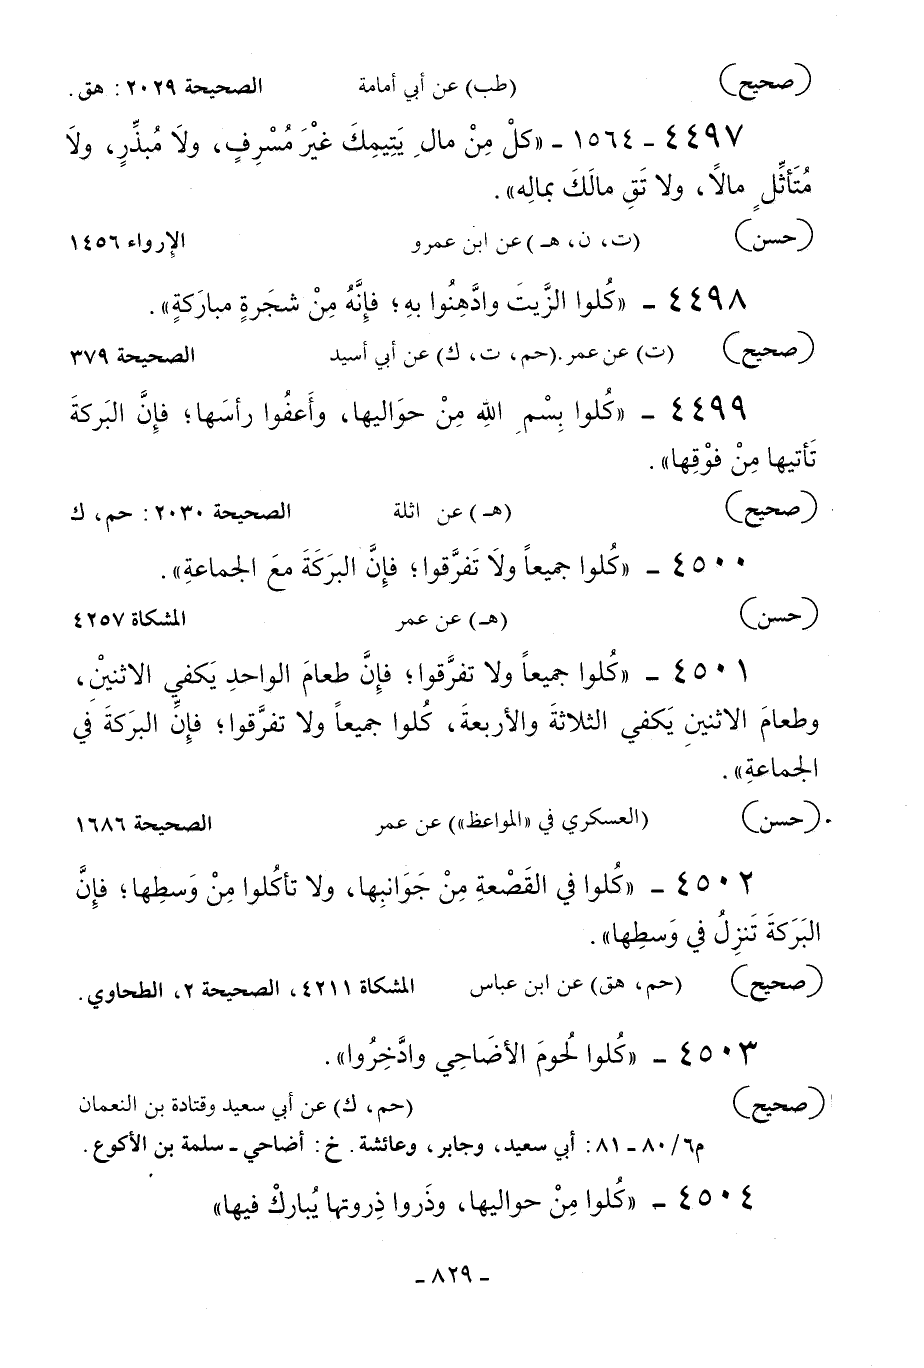 (صحيح) (طب) عن أبي أمامة الصحيحة ٢٠٢٩ : هق.
٤٤٩٧ ـ ١٥٦٤ ـ «كلْ مِنْ مال يَتِيمِكَ غيْرَ مُسْرِفٍ، ولَا مُبذِّرٍ، ولَا
مُتَأثِّلٍ مالًا، ولا تَقِ مالَكَ بمالِه».
(حسن) (ت، ن، هـ) عن ابن عمرو الإرواء ١٤٥٦
٤٤٩٨ ـ «كُلوا الزَّيتَ وادَّهِنُوا بهِ؛ فإِنَّهُ مِنْ شجَرةٍ مبارَكةٍ».
(صحيح) (ت) عن عمر. (حم، ت، ك) عن أبي أسيد الصحيحة ٣٧٩
٤٤٩٩ ـ «كُلوا بِسْمِ اللهِ مِنْ حوَاليها، وأَعفُوا رأسَها؛ فإنَّ البَركةَ
تَأتيها مِنْ فوْقِها».
(صحيح) (هـ) عن اثلة الصحيحة ٢٠٣٠ : حم، ك
٤٥٠٠ ـ «كُلوا جميعاً ولَا تَفرَّقوا؛ فإنَّ البرَكَةَ معَ الجماعةِ».
(حسن) (هـ) عن عمر المشكاة ٤٢٥٧
٤٥٠١ ـ «كُلوا جميعاً ولا تفرَّقوا؛ فإنَّ طعامَ الواحدِ يَكفي الاثنينْ،
وطعامَ الاثنينِ يَكفي الثلاثةَ والأربعةَ، كُلوا جميعاً ولا تفرَّقوا؛ فإنَّ البرَكةَ في
الجماعةِ».
(حسن) (العسكري في «المواعظ») عن عمر الصحيحة ١٦٨٦
٤٥٠٢ ـ «كُلوا في القَصْعةِ مِنْ جَوَانبِها، ولا تأكُلوا مِنْ وَسطِها؛ فإنَّ
البَرَكةَ تَنزِلُ في وَسطِها».
(صحيح) (حم، هق) عن ابن عباس المشكاة ٤٢١١، الصحيحة ٢، الطحاوي.
٤٥٠٣ ـ «كُلوا لُحومَ الأضَاحي وادَّخِرُوا».
(صحيح) (حم، ك) عن أبي سعيد وقتادة بن النعمان
م٦/ ٨٠ ـ ٨١ : أبي سعيد، وجابر، وعائشة. خ : أضاحي ـ سلمة بن الأكوع.
٤٥٠٤ ـ «كُلوا مِنْ حواليها، وذَروا ذِروتها يُباركْ فيها»
ـ ٨٢٩ ـ